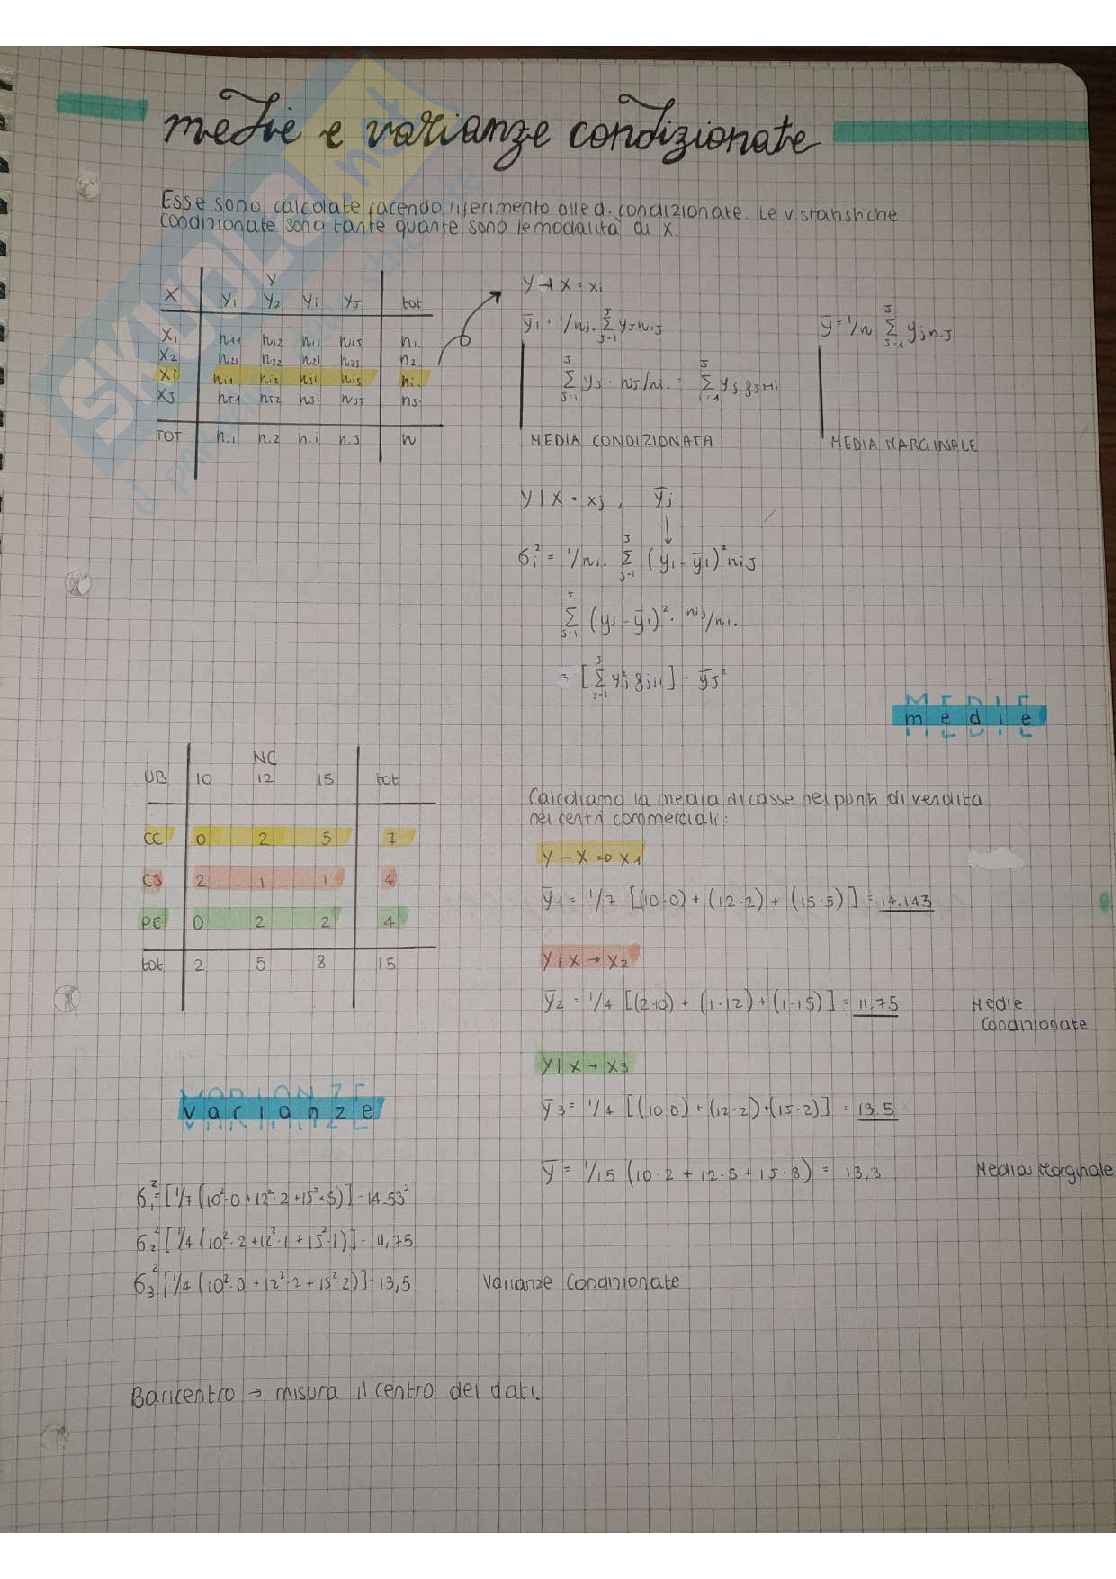 medie e varianze condizionate
Esse sono calcolate facendo riferimento alle d. condizionate. Le v. statistiche
condizionate sono tante quante sono le modalità di X.
Y
X y₁ y₂ yⱼ yJ tot
X₁ n₁₁ n₁₂ n₁J n₁.
X₂ n₂₁ n₂₂ n₂J n₂
Xi ni₁ ni₂ niJ ni.
TOT n.₁ n.₂ n.j n.J n
Y → X = xi
MEDIA CONDIZIONATA
ȳ = 1/n Σ yj n.j
MEDIA MARGINALE
Y | X = xj , ȳj
σi² = 1/ni. Σ (yi - ȳi)² nij
Σ (yj - ȳi)² · nij/ni.
medie
NC
UB 10 12 15 tot
CC 0 2 5 7
CS 2 1 1 4
PE 0 2 2 4
tot 2 5 8 15
Calcoliamo la media di casse nei punti di vendita
nei centri commerciali:
Y - X → X₁
ȳ₁ = 1/7 [(10·0) + (12·2) + (15·5)] = 14,143
Y | X → X₂
ȳ₂ = 1/4 [(2·10) + (1·12) + (1·15)] = 11,75
Medie
Condizionate
Y | X → X₃
ȳ₃ = 1/4 [(10·0) + (12·2)·(15·2)] = 13,5
ȳ = 1/15 (10·2 + 12·5 + 15·8) = 13,3
Media Marginale
varianze
σ₁² = [1/7 (10²·0 + 12²·2 + 15²·5)] - 14,53²
σ₂² [1/4 (10²·2 + 12²·1 + 15²·1)] - 11,75
σ₃² [1/4 (10²·0 + 12²·2 + 15²·2)] - 13,5
Varianze Condizionate
Baricentro → misura il centro dei dati.